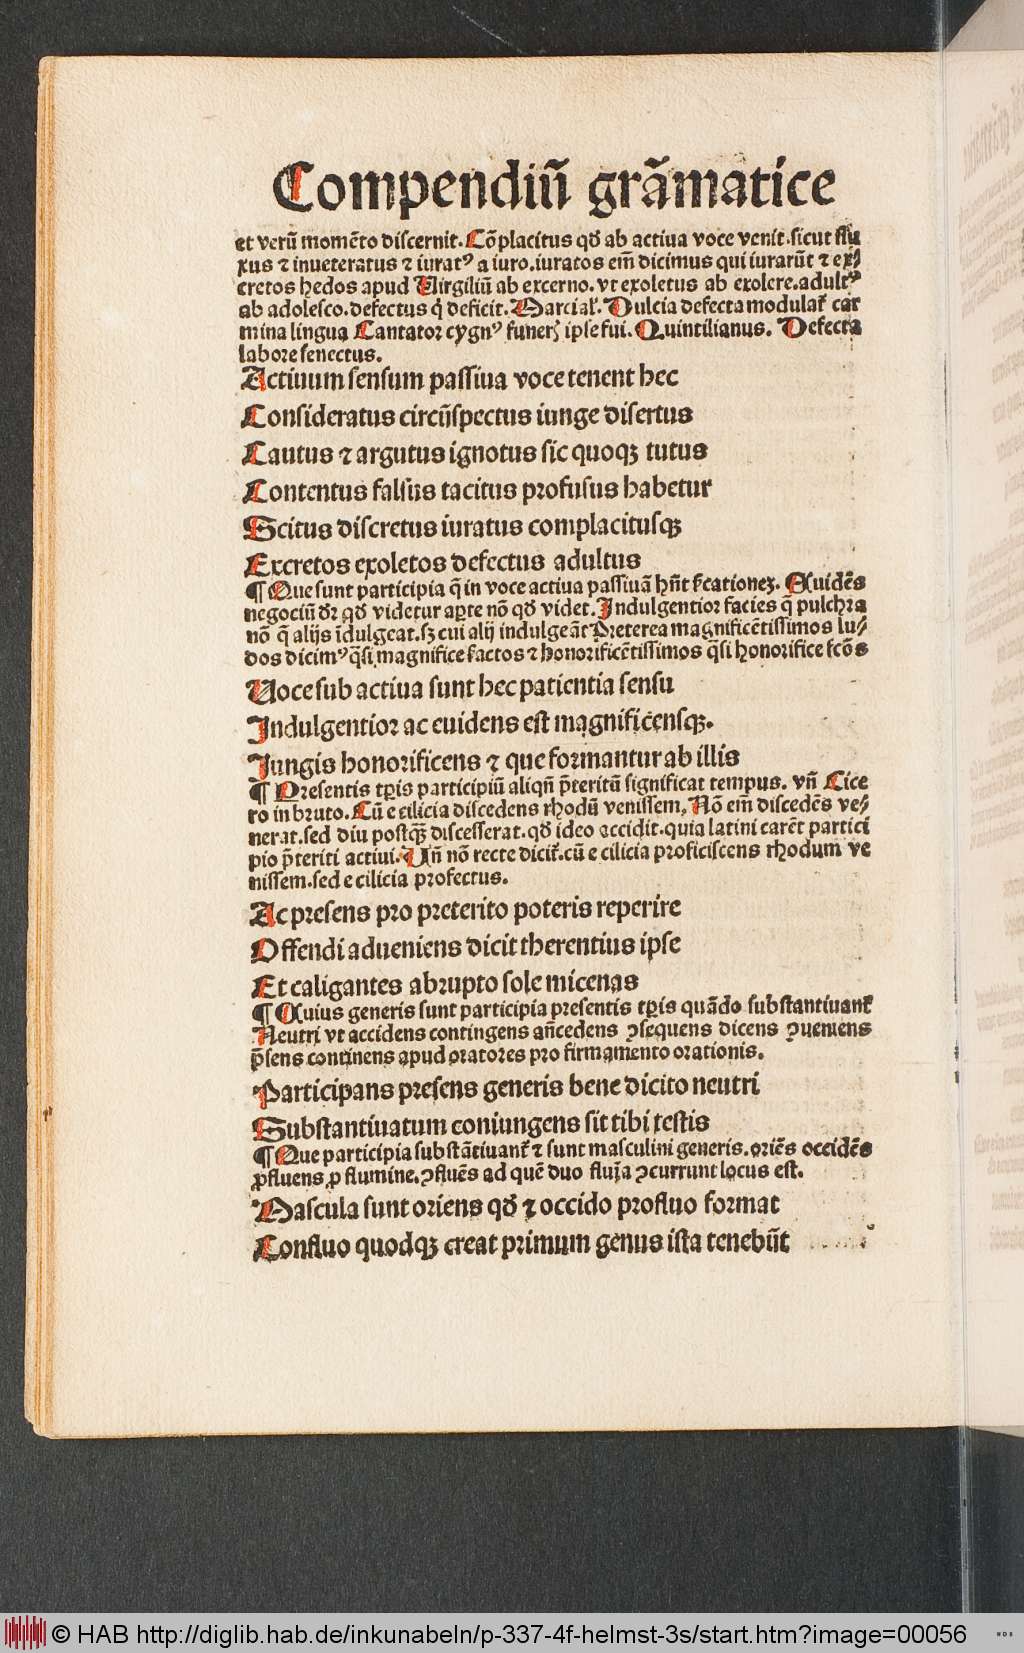 Compendiū grāmatice
et verū momēto discernit. Cōplacitus qđ ab actiua voce venit. sicut flu
xus ⁊ inueteratus ⁊ iuratꝰ a iuro. iuratos em̄ dicimus qui iurarūt ⁊ ex⸗
cretos hedos apud Virgiliū ab excerno. vt exoletus ab exolere. adultꝰ
ab adolesco. defectus q̄ deficit. Marcial̛. Dulcia defecta modulat̛ car
mina lingua Cantator cygnꝰ funeris̛ ipse fui. Quintilianus. Defecta
labore senectus.
Actiuum sensum passiua voce tenent hec
Consideratus circūspectus iunge disertus
Cautus ⁊ argutus ignotus sic quoqꝫ tutus
Contentus falsus tacitus profusus habetur
Scitus discretus iuratus complacitusqꝫ
Excretos exoletos defectus adultus
¶ Que sunt participia q̄ in voce actiua passiuā hn̄t sc̄ationeꝫ. Euidēs
negociū dr̄ qđ videtur aꝑte nō qđ videt. Indulgentior facies q̄ pulchra
nō q̄ alijs īdulgeat. sꝫ cui alij indulgeāt Preterea magnificētissimos lu⸗
dos dicimꝰ q̄si magnifice factos ⁊ honorificētissimos q̄si honorifice fc̄os
Uoce sub actiua sunt hec patientia sensu
Indulgentior ac euidens est magnificensqꝫ.
Iungis honorificens ⁊ que formantur ab illis
¶ Presentis tꝑis participiū aliqn̄ p̄teritū significat tempus. vn̄ Cice
ro in bruto. Cū e cilicia discedens rhodū venissem, Nō em̄ discedēs ve⸗
nerat. sed diu postqꝫ discesserat. qđ ideo accidit. quia latini carēt partici
pio p̄teriti actiui. Un̄ nō recte dicit̛. cū e cilicia proficiscens rhodum ve
nissem. sed e cilicia profectus.
Ac presens pro preterito poteris reperire
Offendi adueniens dicit therentius ipse
Et caligantes abrupto sole micenas
¶ Cuius generis sunt participia presentis tꝑis quādo substantiuant̛
Neutri vt accidens contingens an̄cedens ꝯsequens dicens ꝯueniens
p̄sens continens apud oratores pro firmamento orationis.
Participans presens generis bene dicito neutri
Substantiuatum coniungens sit tibi testis
¶ Que participia substātiuant̛ ⁊ sunt masculini generis. oriēs occidēs
ꝓfluens ꝓ flumine. ꝯfluēs ad quē duo fluuia ꝯcurrunt locus est.
Mascula sunt oriens qđ ⁊ occido profluo format
Confluo quodqꝫ creat primum genus ista tenebūt
© HAB http://diglib.hab.de/inkunabeln/p-337-4f-helmst-3s/start.htm?image=00056